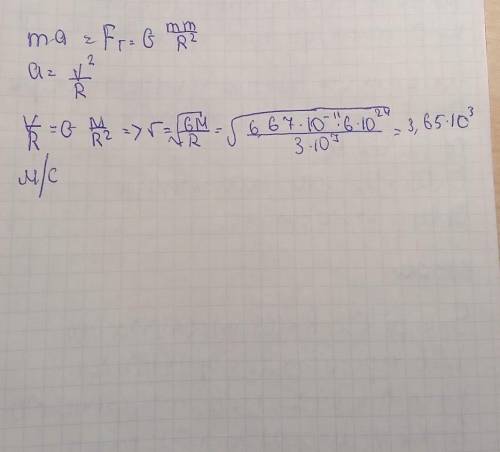 ma = Fг = G mm/R²
a = V²/R
V/R = G M/R² => v = √(GM/R) = √(6,67·10⁻¹¹·6·10²⁴/3·10⁷) = 3,65·10³
м/с